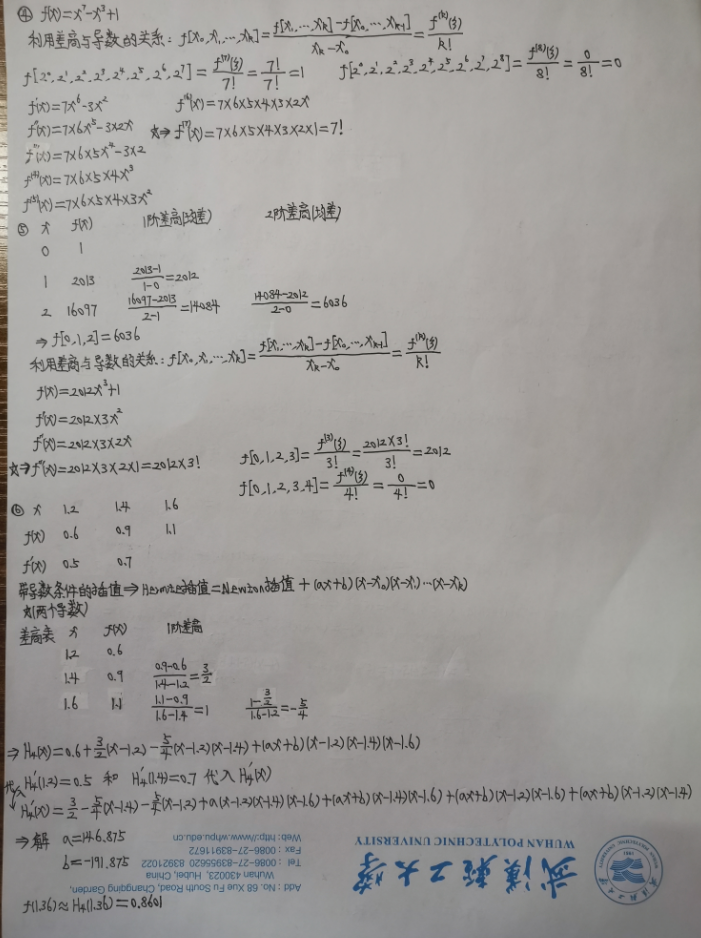 ④ f(x)=x⁷-x³+1
利用差商与导数的关系: f[x₀,x₁,…,xₖ]=(f[x₁,…,xₖ]-f[x₀,…,xₖ₋₁])/(xₖ-x₀)=f⁽ᵏ⁾(ξ)/k!
f[2⁰,2¹,2²,2³,2⁴,2⁵,2⁶,2⁷]=f⁽⁷⁾(ξ)/7!=7!/7!=1 f[2⁰,2¹,2²,2³,2⁴,2⁵,2⁶,2⁷,2⁸]=f⁽⁸⁾(ξ)/8!=0/8!=0
f'(x)=7x⁶-3x² f⁽⁶⁾(x)=7×6×5×4×3×2x
f''(x)=7×6x⁵-3×2x ☆⇒f⁽⁷⁾(x)=7×6×5×4×3×2×1=7!
f'''(x)=7×6×5x⁴-3×2
f⁽⁴⁾(x)=7×6×5×4x³
f⁽⁵⁾(x)=7×6×5×4×3x²
⑤ x f(x) 1阶差商(均差) 2阶差商(均差)
0 1
1 2013 (2013-1)/(1-0)=2012
2 16097 (16097-2013)/(2-1)=14084 (14084-2012)/(2-0)=6036
⇒f[0,1,2]=6036
利用差商与导数的关系: f[x₀,x₁,…,xₖ]=(f[x₁,…,xₖ]-f[x₀,…,xₖ₋₁])/(xₖ-x₀)=f⁽ᵏ⁾(ξ)/k!
f(x)=2012x³+1
f'(x)=2012×3x²
f''(x)=2012×3×2x
☆⇒f'''(x)=2012×3×2×1=2012×3! f[0,1,2,3]=f⁽³⁾(ξ)/3!=2012×3!/3!=2012
f[0,1,2,3,4]=f⁽⁴⁾(ξ)/4!=0/4!=0
⑥ x 1.2 1.4 1.6
f(x) 0.6 0.9 1.1
f'(x) 0.5 0.7
带导数条件的插值⇒Hermite插值=Newton插值+(ax+b)(x-x₀)(x-x₁)…(x-xₖ)
☆(两个导数)
差商表 x f(x) 1阶差商
1.2 0.6
1.4 0.9 (0.9-0.6)/(1.4-1.2)=3/2
1.6 1.1 (1.1-0.9)/(1.6-1.4)=1 (1-3/2)/(1.6-1.2)=-5/4
⇒H₄(x)=0.6+3/2(x-1.2)-5/4(x-1.2)(x-1.4)+(ax+b)(x-1.2)(x-1.4)(x-1.6)
代入 H₄'(1.2)=0.5 和 H₄'(1.4)=0.7 代入 H₄'(x)
H₄'(x)=3/2-5/4(x-1.4)-5/4(x-1.2)+a(x-1.2)(x-1.4)(x-1.6)+(ax+b)(x-1.4)(x-1.6)+(ax+b)(x-1.2)(x-1.6)+(ax+b)(x-1.2)(x-1.4)
⇒解 a=146.875
b=-191.875
f(1.36)≈H₄(1.36)=0.8601
武漢輕工大學
WUHAN POLYTECHNIC UNIVERSITY
Add : No. 68 Xue Fu South Road, Changqing Garden,
Wuhan 430023, Hubei, China
Tel : 0086-27-83955620 83921022
Fax : 0086-27-83911672
Web : http://www.whpu.edu.cn